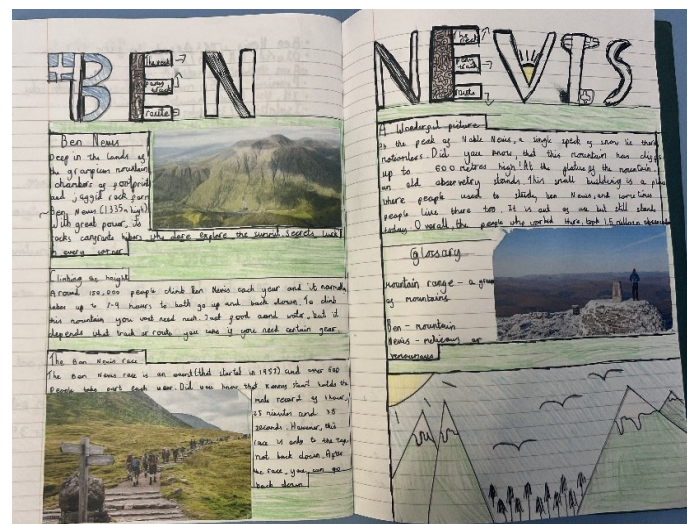 BEN
the rock
pony track
route
Ben Nevis
Deep in the lands of
the grampian mountain
chambers of footprints
and jagged rock form
Ben Nevis (1335m high).
With great power, its
rocks who dare explore the summit. Secrets lurk
in every corner.
Climbing the height
Around 150,000 people climb Ben Nevis each year and it normally
takes up to 7-9 hours to both go up and back down. To climb
this mountain you wont need much. Just food and water, but it
depends what track or route you take if you need certain gear.
The Ben Nevis race
The Ben Nevis race is an event (that started in 1937) and over 500
people take part each year. Did you know that Kenny Stuart holds the
male record of 1 hour,
25 minutes and
seconds. However, this
race is only to the top
not back down. After
the race, you can go
back down
NEVIS
route
A Wonderful picture
As the peak of Noble Nevis, a single speck of snow lie there
motionless. Did you know, that this mountain has cliffs
up to 600 metres high! At the plateau of the mountain
an old observatory stands. This small building is a place
where people used to study ben Nevis, and sometimes
people live there too. It is out of use but still stands
today. Overall, the people who worked there, took 1.5 million
Glossary
Mountain range - a group
of mountains
Ben - mountain
Nevis - malicious or
venomous